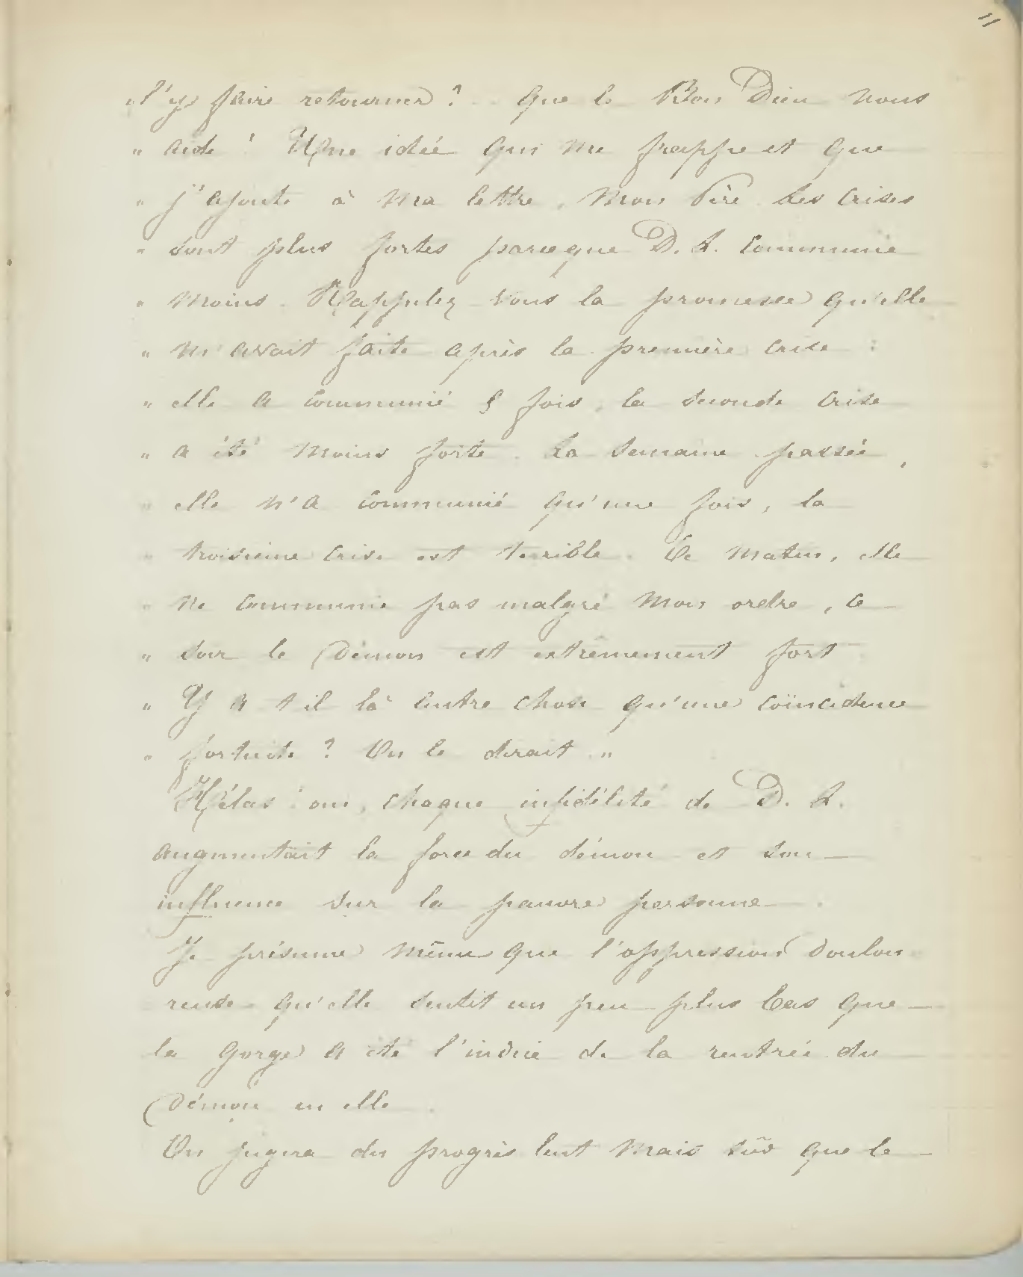 11
"l'y faire retourner ? Que le Bon Dieu nous
" aide ! Une idée qui me frappe et que
" j'ajoute à ma lettre, Mon Père. Les crises
" sont plus fortes parceque D. L. communie
" moins. Rappelez vous la promesse qu'elle
" m'avait faite après la première crise :
" elle a communié 5 fois, la seconde crise
" a été moins forte. La semaine passée,
" elle n'a communié qu'une fois, la
" troisième crise est terrible. Ce matin, elle
" ne communie pas malgré mon ordre, ce
" soir le Démon est extrêmement fort
" Y a t il là autre chose qu'une coïncidence
" fortuite ? On le dirait "
Hélas ! oui, chaque infidélité de D. L.
augmentait la force du démon et son
influence sur la pauvre personne.
Je présume même que l'oppression doulou
reuse qu'elle sentit un peu plus bas que
la gorge a été l'indice de la rentrée du
Démon en elle.
On jugera du progrès lent mais sûr que le